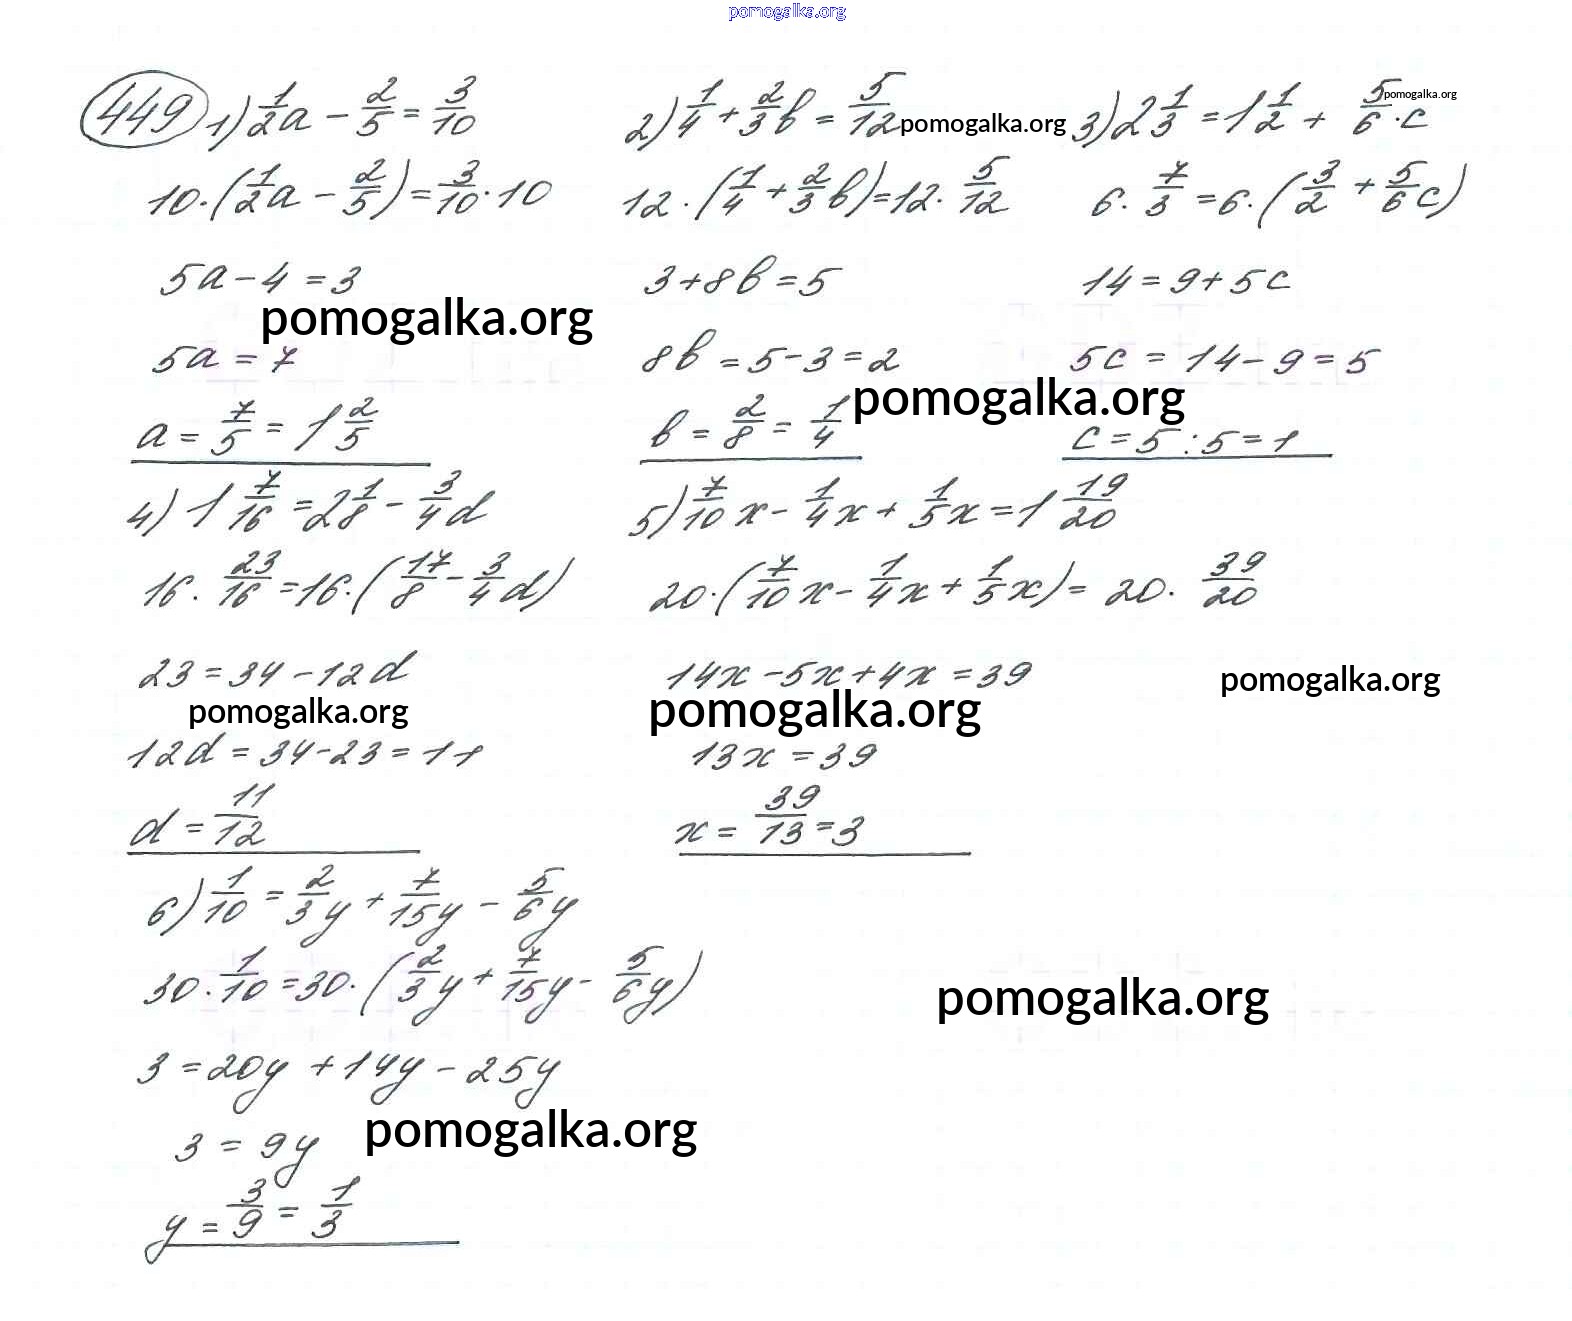 pomogalka.org
449 1) 1/2 a - 2/5 = 3/10
10·(1/2 a - 2/5) = 3/10·10
5a - 4 = 3
pomogalka.org
5a = 7
a = 7/5 = 1 2/5
2) 1/4 + 2/3 b = 5/12
pomogalka.org
12·(1/4 + 2/3 b) = 12·5/12
3 + 8b = 5
8b = 5 - 3 = 2
pomogalka.org
b = 2/8 = 1/4
3) 2 1/3 = 1 1/2 + 5/6·c
pomogalka.org
6·7/3 = 6·(3/2 + 5/6 c)
14 = 9 + 5c
5c = 14 - 9 = 5
c = 5 : 5 = 1
4) 1 7/16 = 2 1/8 - 3/4 d
16·23/16 = 16·(17/8 - 3/4 d)
23 = 34 - 12d
pomogalka.org
12d = 34 - 23 = 11
d = 11/12
5) 7/10 x - 1/4 x + 1/5 x = 1 19/20
20·(7/10 x - 1/4 x + 1/5 x) = 20·39/20
14x - 5x + 4x = 39
pomogalka.org
pomogalka.org
13x = 39
x = 39/13 = 3
6) 1/10 = 2/3 y + 7/15 y - 5/6 y
30·1/10 = 30·(2/3 y + 7/15 y - 5/6 y)
pomogalka.org
3 = 20y + 14y - 25y
pomogalka.org
3 = 9y
y = 3/9 = 1/3